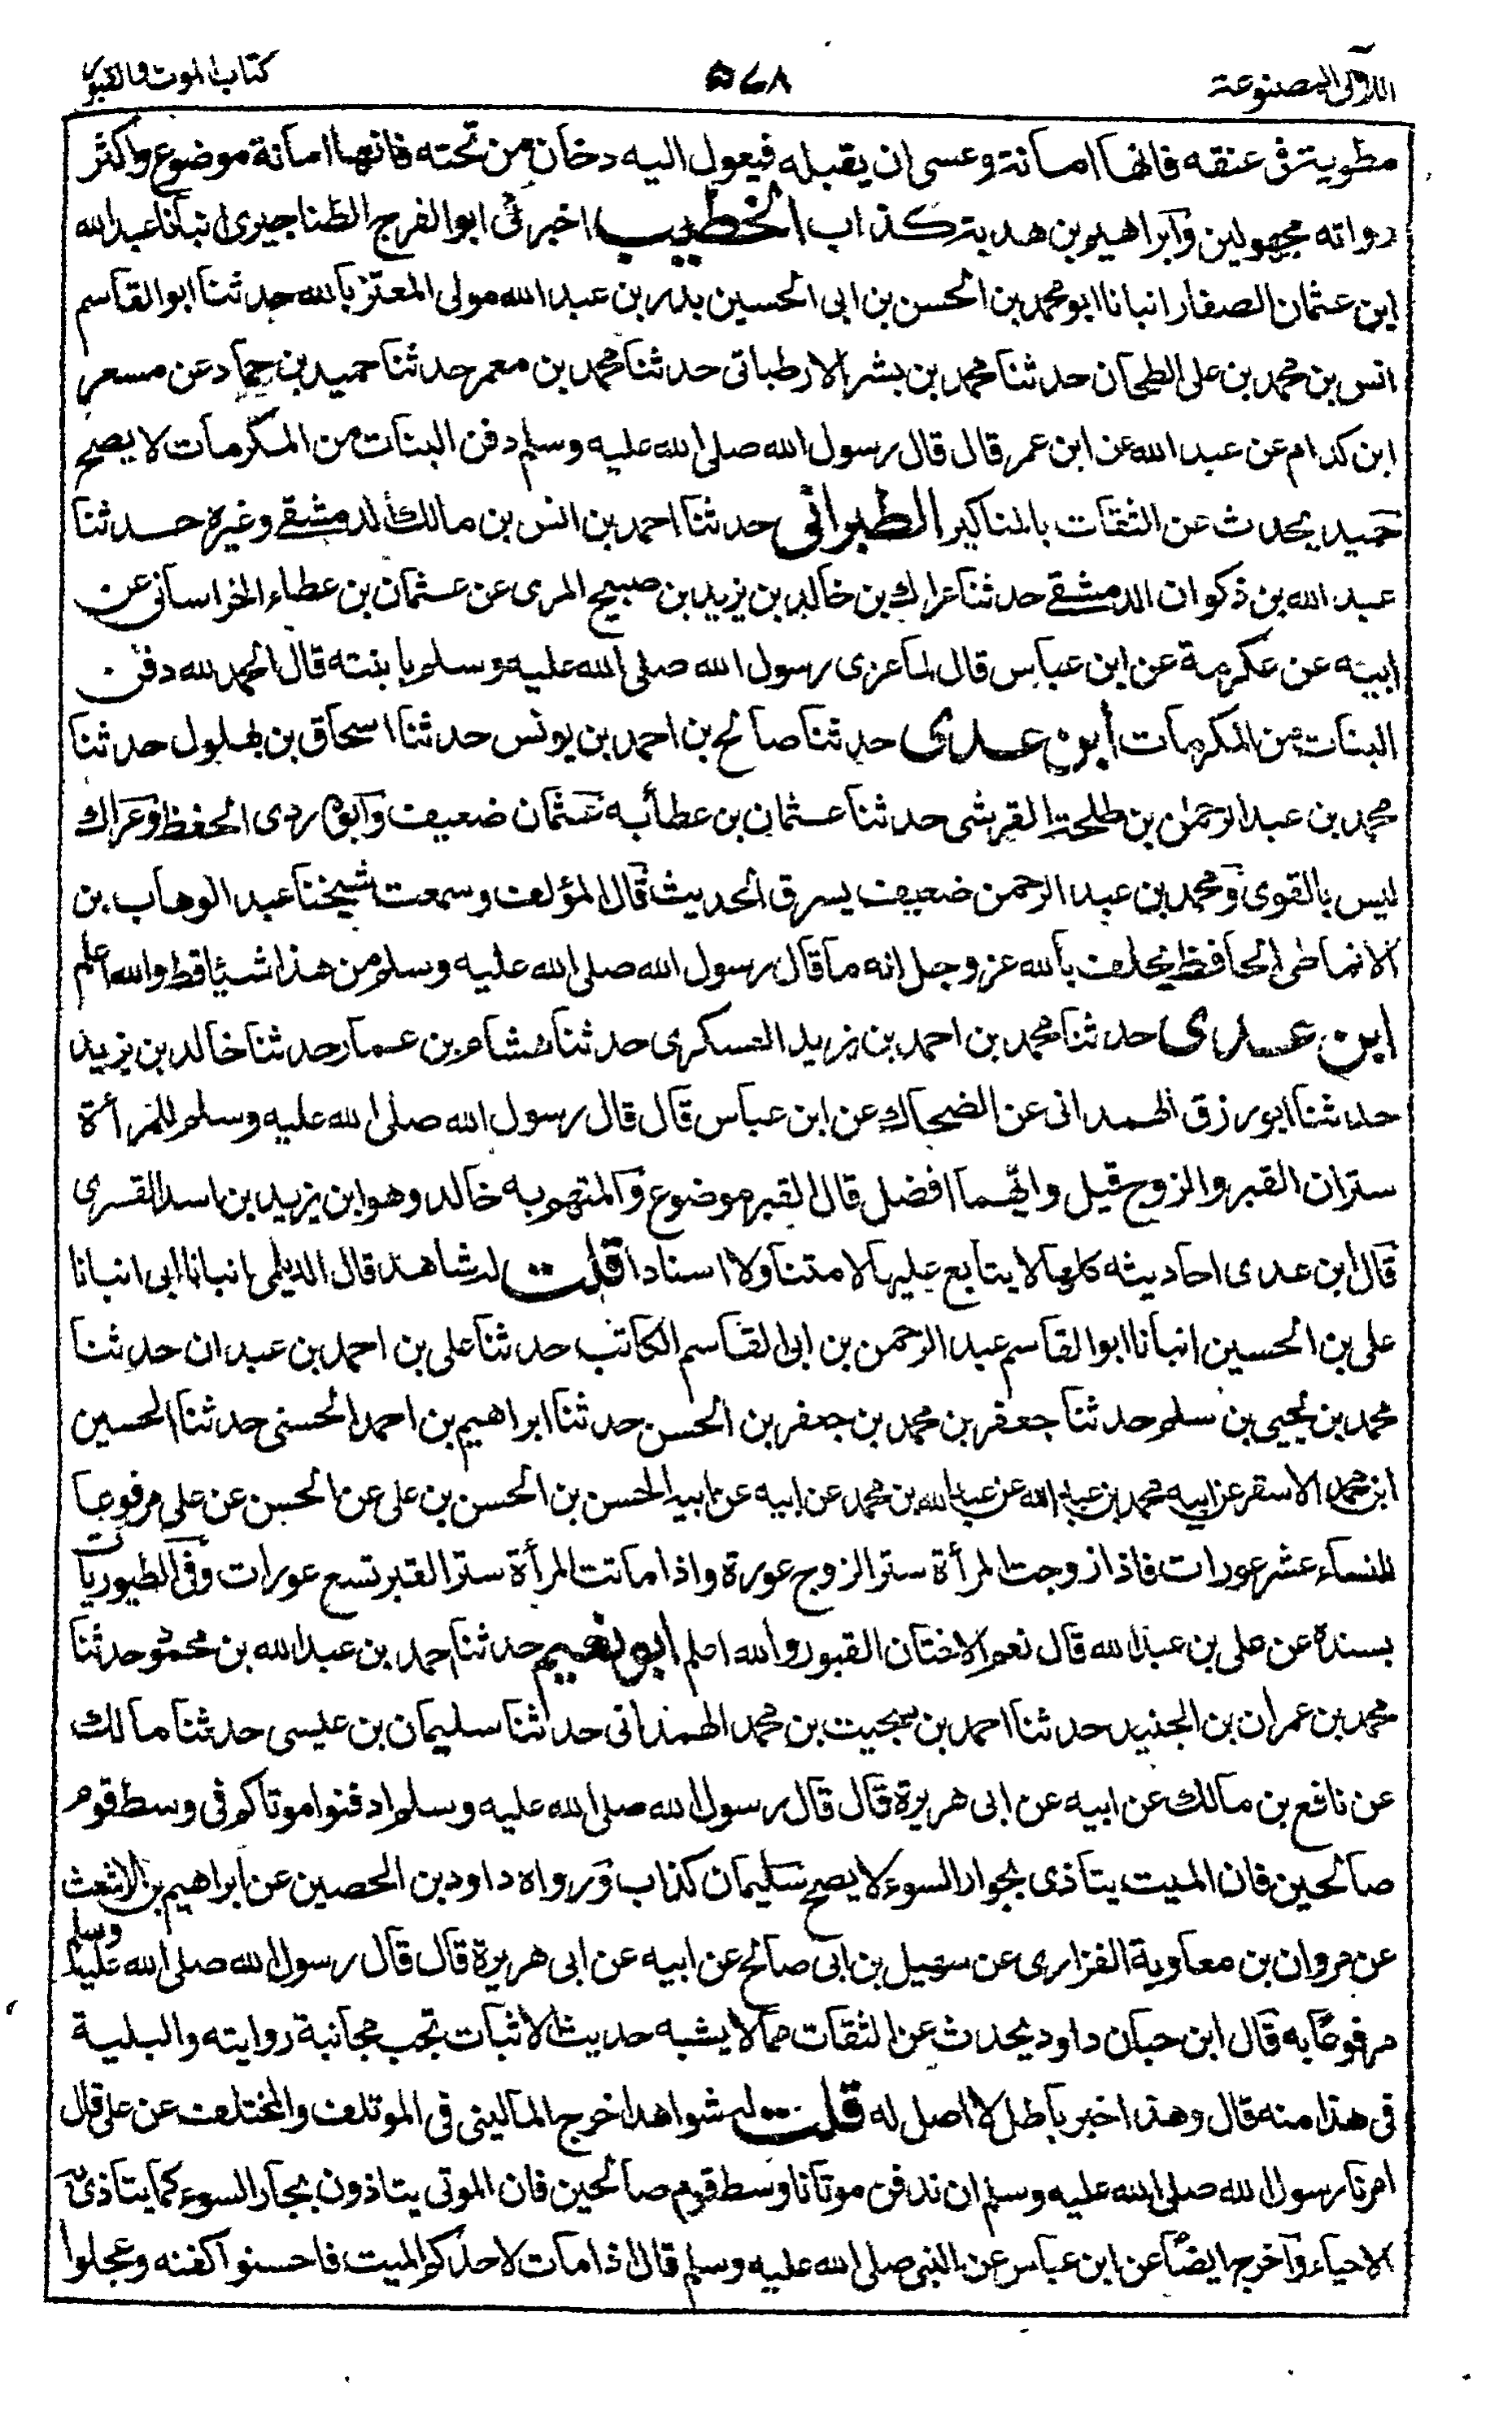 اللآلی المصنوعة
۵۷۸
کتاب الموت والقبور
مطویة فی عنقه فانها امانة وعسی ان یقبله فیعول الیه دخان من تحته فانها امانة موضوع واکثر
رواته مجهولین وابراهیم بن هدبة کذاب الخطیب اخبرنی ابو الفرج الطناجیری انبأنا عبد الله
ابن عثمان الصفار انبانا ابو محمد بن الحسن بن ابی الحسین بدر بن عبد الله مولی المعتز بالله حدثنا ابو القاسم
انس بن محمد بن علی الطحان حدثنا محمد بن بشر الارطباتی حدثنا محمد بن معمر حدثنا حمید بن حماد عن مسعر
ابن کدام عن عبد الله عن ابن عمر قال قال رسول الله صلی الله علیه وسلم دفن البنات من المکرمات لا یصح
حمید یحدث عن الثقات بالمناکیر الطبرانی حدثنا احمد بن انس بن مالك الدمشقی وغیره حدثنا
عبد الله بن ذکوان الدمشقی حدثنا عراك بن خالد بن یزید بن صبیح المری عن عثمان بن عطاء الخراسانی عن
ابیه عن عکرمة عن ابن عباس قال لما عزی رسول الله صلی الله علیه وسلم بابنته قال الحمد لله دفن
البنات من المکرمات ابن عدی حدثنا صالح بن احمد بن یونس حدثنا اسحاق بن بهلول حدثنا
محمد بن عبد الرحمن بن طلحة القرشی حدثنا عثمان بن عطا به عثمان ضعیف وابوه ردی الحفظ وعراك
لیس بالقوی ومحمد بن عبد الرحمن ضعیف یسرق الحدیث قال المؤلف وسمعت شیخنا عبد الوهاب بن
الانماطی الحافظ یحلف بالله عز وجل انه ما قال رسول الله صلی الله علیه وسلم من هذا شیئا قط والله اعلم
ابن عدی حدثنا محمد بن احمد بن یزید العسکری حدثنا هشام بن عمار حدثنا خالد بن یزید
حدثنا ابو رزق الهمدانی عن الضحاك عن ابن عباس قال قال رسول الله صلی الله علیه وسلم للمرأة
ستران القبر والزوج قیل وایهما افضل قال القبر موضوع والمتهم به خالد وهو ابن یزید بن اسد القسری
قال ابن عدی احادیثه کلها لا یتابع علیها لا متنا ولا اسنادا قلت له شاهد قال الدیلمی انبانا ابی انبانا
علی بن الحسین انبانا ابو القاسم عبد الرحمن بن ابی القاسم الکاتب حدثنا علی بن احمد بن عبدان حدثنا
محمد بن یحیی بن سلم حدثنا جعفر بن محمد بن جعفر بن الحسن حدثنا ابراهیم بن احمد الحسنی حدثنا الحسین
ابن محمد الاسقر عن ابیه محمد بن عبد الله عن عبد الله بن محمد عن ابیه عن ابیه الحسن بن الحسن بن علی عن الحسن عن علی مرفوعا
للنساء عشر عورات فاذا زوجت المرأة ستر الزوج عورة واذا ماتت المرأة ستر القبر تسع عورات وفی الطیوریات
بسنده عن علی بن عبد الله قال نعم الاختان القبور والله اعلم ابو نعیم حدثنا احمد بن عبد الله بن محمود حدثنا
محمد بن عمران بن الجنید حدثنا احمد بن محمد الهمذانی حدثنا سلیمان بن عیسی حدثنا مالك
عن نافع بن مالك عن ابیه عن ابی هریرة قال قال رسول الله صلی الله علیه وسلم ادفنوا موتاکم فی وسط قوم
صالحین فان المیت یتاذی بجوار السوء لا یصح سلیمان کذاب ورواه داود بن الحصین عن ابراهیم بن الاشعث
عن مروان بن معاویة الفزاری عن سهیل بن ابی صالح عن ابیه عن ابی هریرة قال قال رسول الله صلی الله علیه وسلم
مرفوعا به قال ابن حبان داود یحدث عن الثقات مما لا یشبه حدیث الاثبات تجب مجانبة روایته والبلیة
فی هذا منه قال وهذا خبر باطل لا اصل له قلت له شواهد اخرج المالینی فی الموتلف والمختلف عن علی قال
امرنا رسول الله صلی الله علیه وسلم ان ندفن موتانا وسط قوم صالحین فان الموتی یتاذون بجار السوء کما یتاذی به
الاحیاء واخرج ایضا عن ابن عباس عن النبی صلی الله علیه وسلم قال اذا مات لاحدکم المیت فاحسنوا کفنه وعجلوا